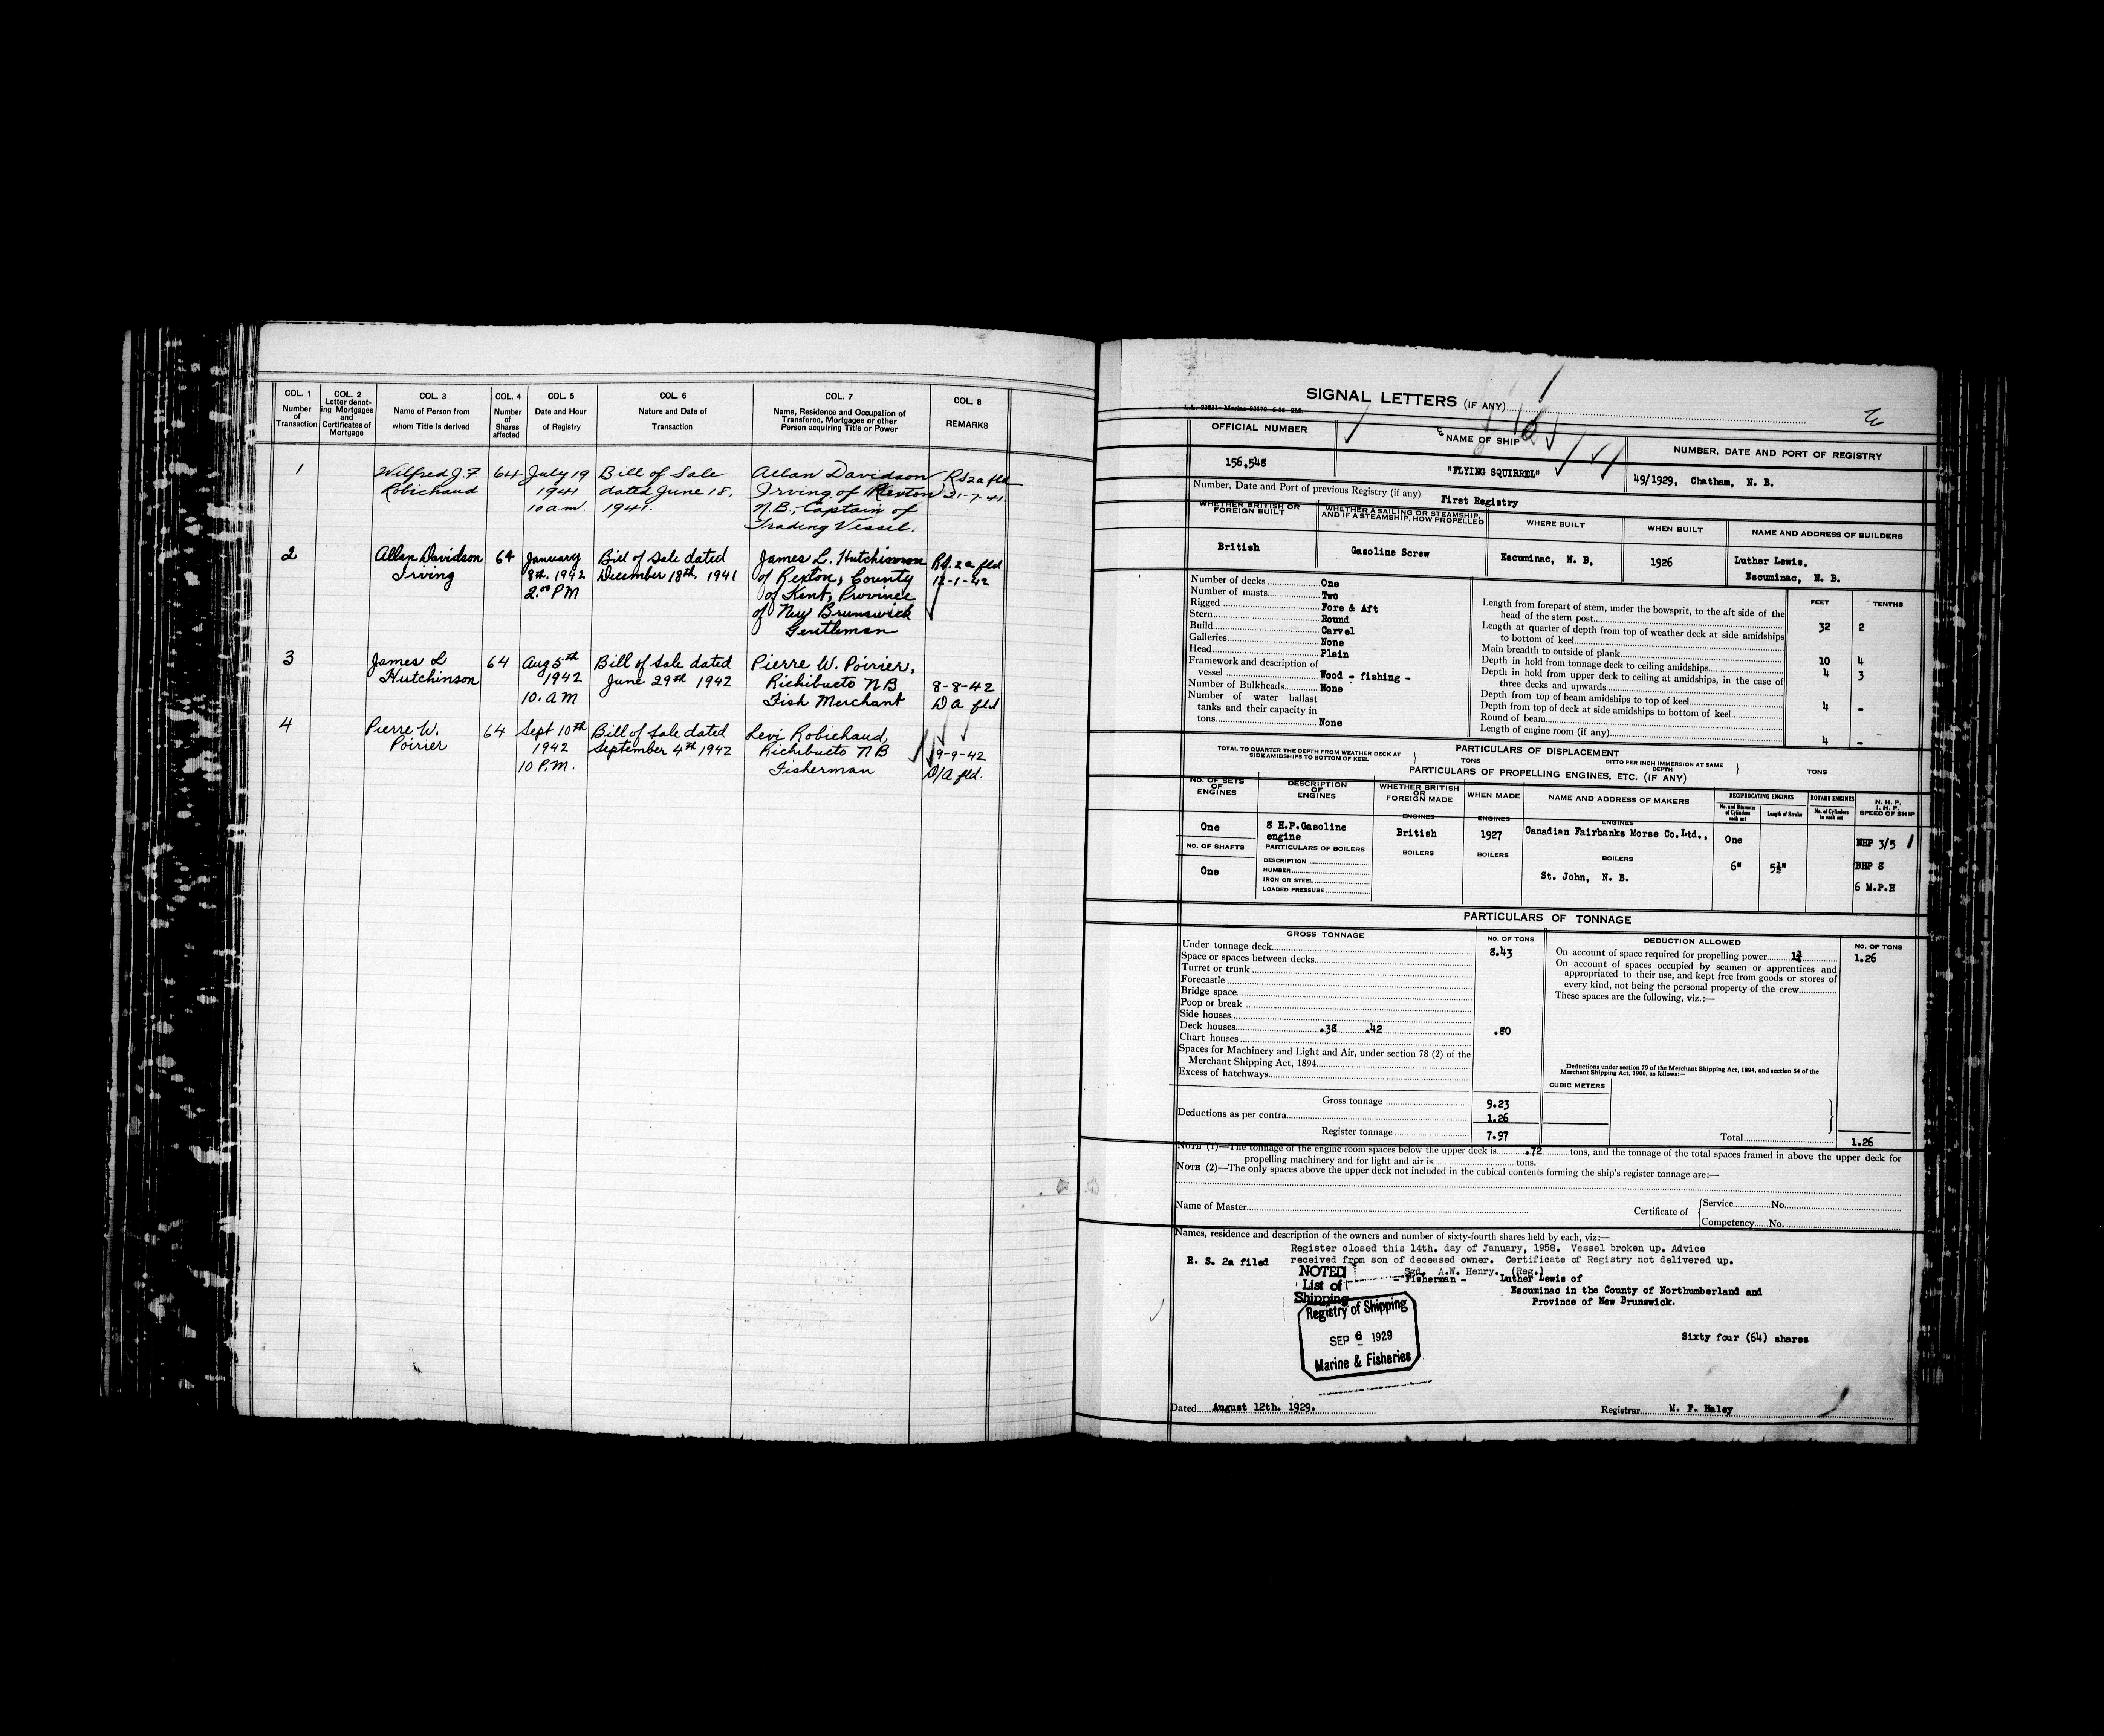 COL. 1
Number
of
Transaction
COL. 2
Letter denot-
ing Mortgages
and
Certificates of
Mortgage
COL. 3
Name of Person from
whom Title is derived
COL. 4
Number
of
Shares
affected
COL. 5
Date and Hour
of Registry
COL. 6
Nature and Date of
Transaction
COL. 7
Name, Residence and Occupation of
Transferee, Mortgagee or other
Person acquiring Title or Power
COL. 8
REMARKS
1
Wilfred J. F.
Robichaud
64
July 19
1941
10 a.m.
Bill of Sale
dated June 18,
1941.
Allan Davidson
Irving of Rexton
N.B., Captain of
Trading Vessel.
RS 2a fld
21-7-41.
2
Allan Davidson
Irving
64
January
8th. 1942
2.00 PM
Bill of Sale dated
December 18th. 1941
James L. Hutchinson
of Rexton, County
of Kent, Province
of New Brunswick
Gentleman
RS. 2a fld
12-1-42
3
James L
Hutchinson
64
Aug 5th
1942
10. AM
Bill of Sale dated
June 29th 1942
Pierre W. Poirier,
Richibucto NB
Fish Merchant
8-8-42
D a fld
4
Pierre W.
Poirier
64
Sept 10th
1942
10 P.M.
Bill of Sale dated
September 4th 1942
Levi Robichaud,
Richibucto NB
Fisherman
19-9-42
D/A fld.
SIGNAL LETTERS (IF ANY)
OFFICIAL NUMBER
156,548
NAME OF SHIP
"FLYING SQUIRREL"
NUMBER, DATE AND PORT OF REGISTRY
49/1929, Chatham, N. B.
Number, Date and Port of previous Registry (if any) First Registry
WHETHER BRITISH OR
FOREIGN BUILT
British
WHETHER A SAILING OR STEAMSHIP,
AND IF A STEAMSHIP, HOW PROPELLED
Gasoline Screw
WHERE BUILT
Escuminac, N. B,
WHEN BUILT
1926
NAME AND ADDRESS OF BUILDERS
Luther Lewis,
Escuminac, N. B.
Number of decks One
Number of masts Two
Rigged Fore & Aft
Stern Round
Build Carvel
Galleries None
Head Plain
Framework and description of
vessel Wood - fishing -
Number of Bulkheads None
Number of water ballast
tanks and their capacity in
tons None
FEET TENTHS
Length from forepart of stem, under the bowsprit, to the aft side of the
head of the stern post 32 2
Length at quarter of depth from top of weather deck at side amidships
to bottom of keel
Main breadth to outside of plank 10 4
Depth in hold from tonnage deck to ceiling amidships 4 3
Depth in hold from upper deck to ceiling at amidships, in the case of
three decks and upwards
Depth from top of beam amidships to top of keel 4 -
Depth from top of deck at side amidships to bottom of keel
Round of beam
Length of engine room (if any) 4 -
PARTICULARS OF DISPLACEMENT
TOTAL TO QUARTER THE DEPTH FROM WEATHER DECK AT
SIDE AMIDSHIPS TO BOTTOM OF KEEL
TONS
DITTO PER INCH IMMERSION AT SAME
DEPTH
TONS
PARTICULARS OF PROPELLING ENGINES, ETC. (IF ANY)
NO. OF SETS
OF
ENGINES
One
NO. OF SHAFTS
One
DESCRIPTION
OF
ENGINES
8 H.P.Gasoline
engine
PARTICULARS OF BOILERS
DESCRIPTION
NUMBER
IRON OR STEEL
LOADED PRESSURE
WHETHER BRITISH
OR
FOREIGN MADE
ENGINES
British
BOILERS
WHEN MADE
ENGINES
1927
BOILERS
NAME AND ADDRESS OF MAKERS
ENGINES
Canadian Fairbanks Morse Co.Ltd.,
BOILERS
St. John, N. B.
RECIPROCATING ENGINES
No. and Diameter
of Cylinders
each set
Length of Stroke
One
6" 5½"
ROTARY ENGINES
No. of Cylinders
in each set
N. H. P.
I. H. P.
SPEED OF SHIP
NHP 3/5
BHP 8
6 M.P.H
PARTICULARS OF TONNAGE
GROSS TONNAGE NO. OF TONS
Under tonnage deck 8.43
Space or spaces between decks
Turret or trunk
Forecastle
Bridge space
Poop or break
Side houses
Deck houses .38 .42 .80
Chart houses
Spaces for Machinery and Light and Air, under section 78 (2) of the
Merchant Shipping Act, 1894
Excess of hatchways
Gross tonnage 9.23
Deductions as per contra 1.26
Register tonnage 7.97
DEDUCTION ALLOWED NO. OF TONS
On account of space required for propelling power 1¾ 1.26
On account of spaces occupied by seamen or apprentices and
appropriated to their use, and kept free from goods or stores of
every kind, not being the personal property of the crew
These spaces are the following, viz.:—
Deductions under section 79 of the Merchant Shipping Act, 1894, and section 54 of the
Merchant Shipping Act, 1906, as follows:—
CUBIC METERS
Total 1.26
NOTE (1)—The tonnage of the engine room spaces below the upper deck is .72 tons, and the tonnage of the total spaces framed in above the upper deck for
propelling machinery and for light and air is tons.
NOTE (2)—The only spaces above the upper deck not included in the cubical contents forming the ship's register tonnage are:—
Name of Master
Certificate of
Service No.
Competency No.
Names, residence and description of the owners and number of sixty-fourth shares held by each, viz:—
Register closed this 14th. day of January, 1958. Vessel broken up. Advice
R. S. 2a filed received from son of deceased owner. Certificate of Registry not delivered up.
Sgd. A.W. Henry. (Reg.)
NOTED
List of
Shipping
- Fisherman - Luther Lewis of
Escuminac in the County of Northumberland and
Province of New Brunswick.
Registry of Shipping
SEP 6 1929
Marine & Fisheries
Sixty four (64) shares
Dated August 12th. 1929.
Registrar M. F. Haley